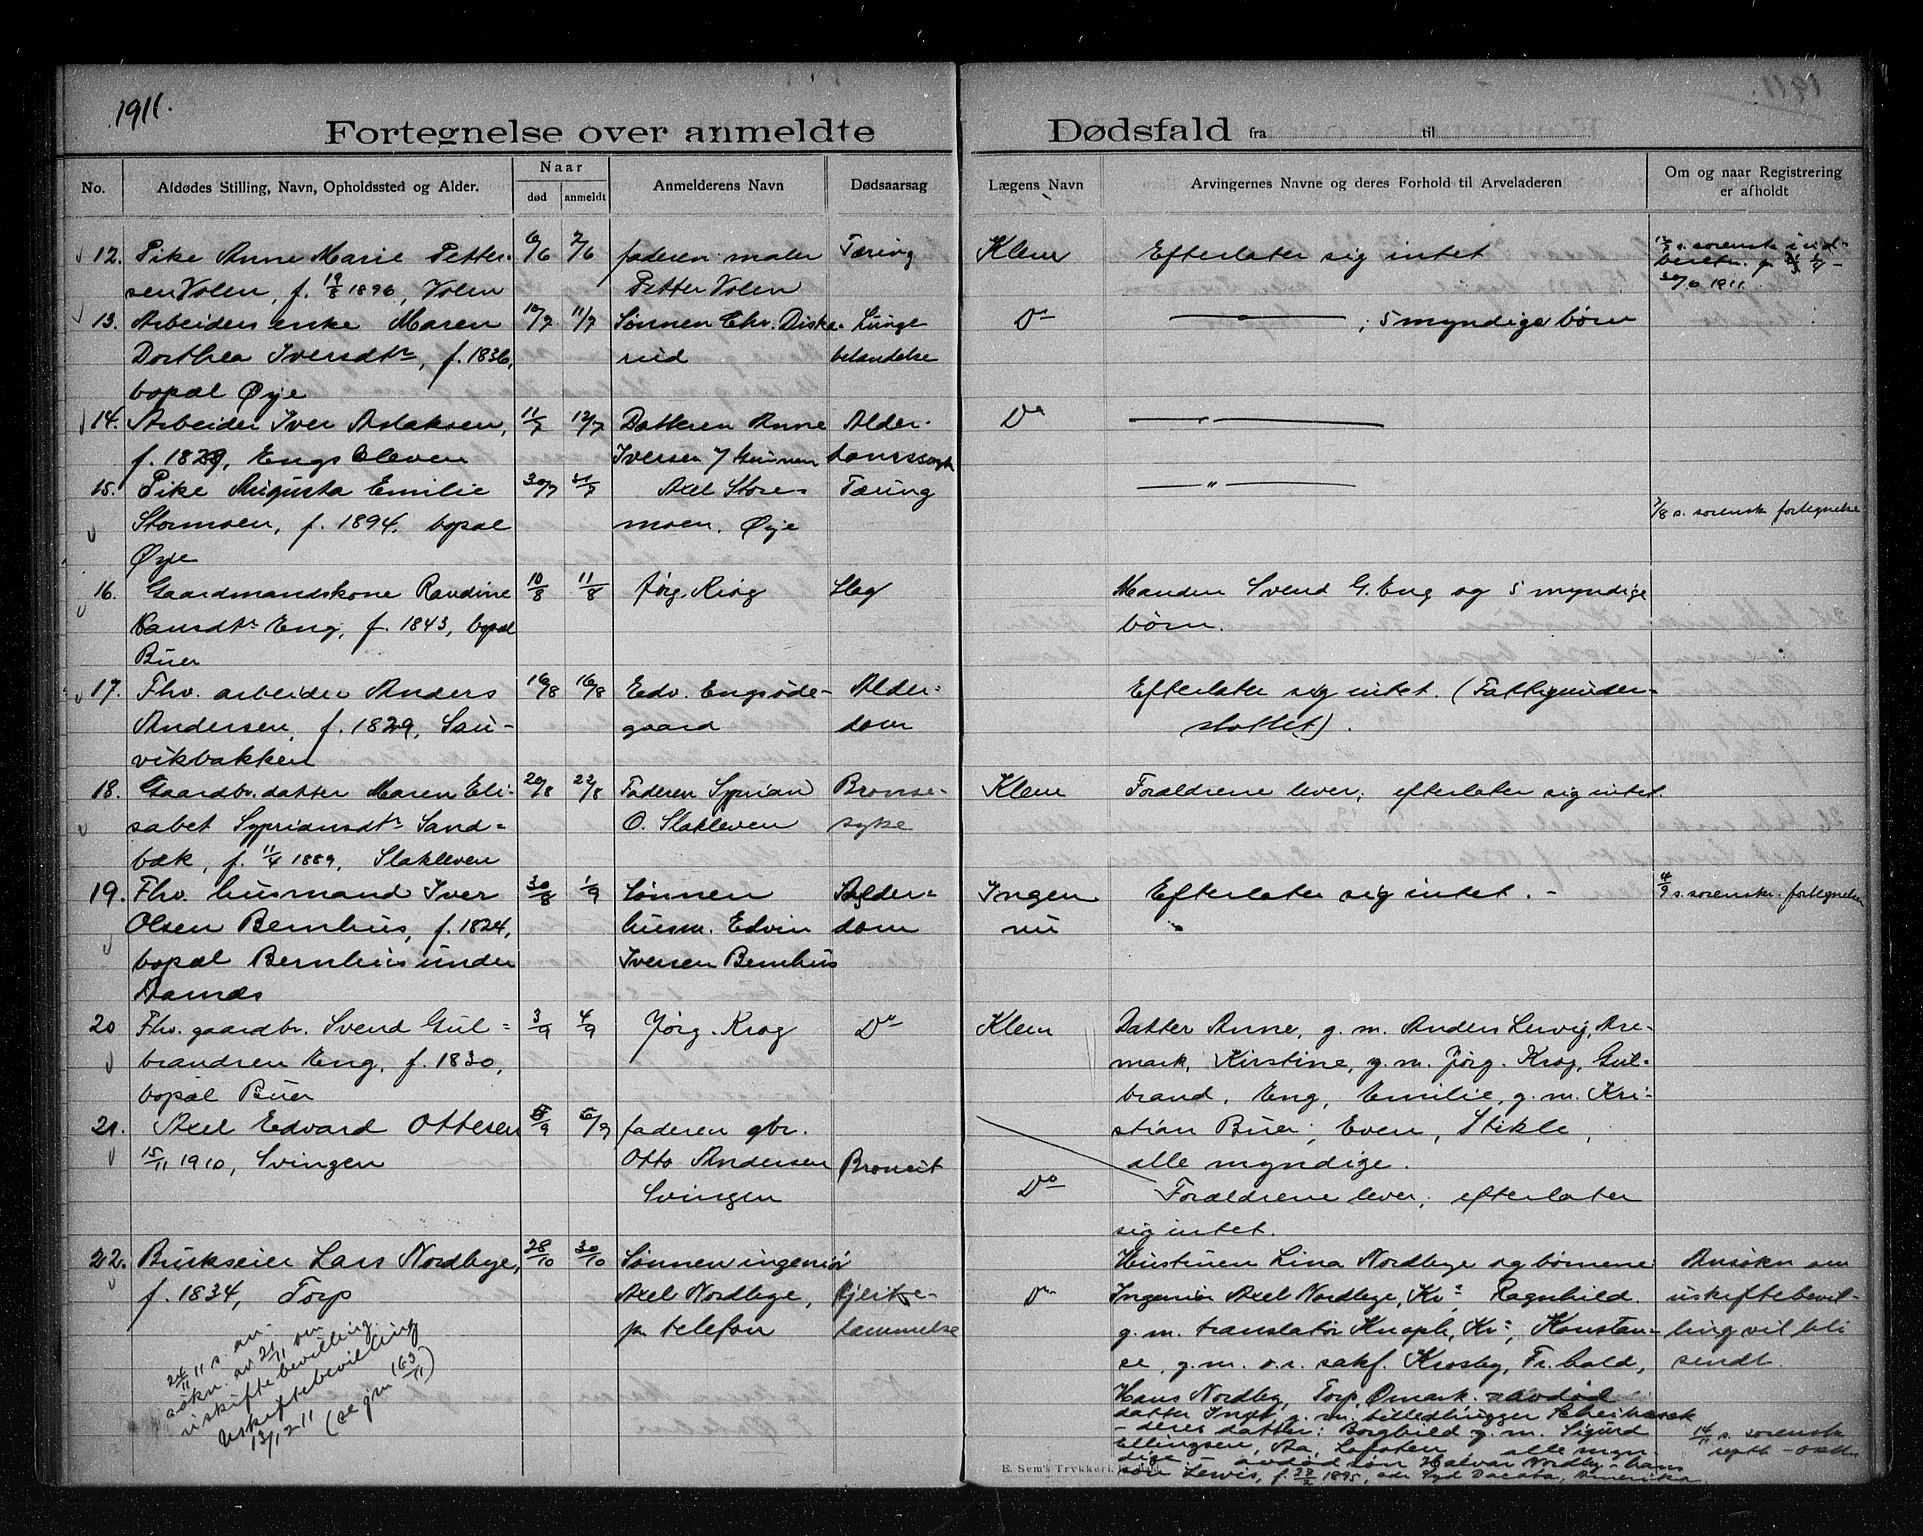 1911.
1911.
Fortegnelse over anmeldte Dødsfald fra til
No.
Afdødes Stilling, Navn, Opholdssted og Alder.
Naar
død
anmeldt
Anmelderens Navn
Dødsaarsag
Lægens Navn
Arvingernes Navne og deres Forhold til Arveladeren
Om og naar Registrering
er afholdt
12. Pike Anne Marie Petter-
sen Volen, f. 19/8 1896, Volen
6/6 7/6
faderen maler
Petter Volen
Tæring
Klem
Efterlater sig intet
s. sorensk. ind-
1911.
13. Arbeiders enke Maren
Dorthea Iversdtr, f. 1836,
bopæl Øye
10/7 11/7
Sønnen Chr. Diske-
rud
Lunge
betændelse
Do
— " — ; 5 myndige børn
14. Arbeider Iver Aslaksen,
f. 1829, Engs Cleven
11/7 12/7
Datteren Anne
Iversen
Alder-
Do
— " —
15. Pike Augusta Emilie
Stormoen, f. 1894, bopæl
Øye
30/7 31/7
Axel Store
moen, Øye
Tæring
— " —
7/8 s. sorensk fortegnelse
16. Gaardmandskone Randine
Hansdtr Eng, f. 1843, bopæl
Buer
10/8 11/8
Jørg. Krog
Slag
Manden Svend G. Eng og 5 myndige
børn.
17. Fhv. arbeider Anders
Andersen, f. 1829, Sau-
vikbakken
16/8 16/8
Edv. Engsøde-
gaard
Alder-
dom
Efterlater sig intet. (Fattigunder-
støttet).
18. Gaardbr. datter Maren Eli-
sabet Sypriansdtr Sand-
bæk, f. 11/4 1889, Slakleven
20/8 22/8
Faderen Syprian
O. Slakleven
Bronse-
syke
Klem
Forældrene lever; efterlater sig intet.
19. Fhv. husmand Iver
Olsen Bernhus, f. 1824,
bopæl Bernhus under
Damnæs
30/8 1/9
Sønnen
husm. Edvin
Iversen Bernhus
Alder-
dom
Ingen
nu
Efterlater sig intet. -
4/9 s. sorenskr. fortegnelse
20 Fhv. gaardbr. Svend Gul-
brandsen Eng, f. 1830,
bopæl Buer
3/9 4/9
Jørg. Krog
Do
Klem
Datter Anne, g. m. Anders Lervig, Are-
mark, Kirstine, g. m. Jørg. Krog, Gul-
brand, Eng, Emilie, g. m. Kri-
stian Buer, Even, Stikle,
alle myndige.
21. Axel Edvard Ottesen
15/11 1910, Svingen
5/9 6/9
faderen gbr.
Otto Andersen
Svingen
Broncit
Do
Forældrene lever; efterlater
sig intet.
22. Brukseier Lars Nordbye,
f. 1834, Torp
28/10 30/10
Sønnen ingeniør
Axel Nordbye,
pr telefon
Hjerte-
lammelse
Do
Hustruen Lina Nordbye og børnene:
Ingeniør Axel Nordbye, Kra, Ragnhild
g. m. translatør Knoph, Kra, Konstan-
se, g. m. o. r. sakf. Krosby, Fr.hald,
Hans Nordby, Torp, Ømark. avdød
datter Inga g. m. billedhugger
deres datter: Borghild g. m. Sigurd
Ellingsen, Aa, Lofoten, alle myn-
dige - avdød søn Halvar Nordby - hans
søn Lewis, f. 27/2 1895, adr Syd Dacota, Amerika
Ansøkn om
uskiftebevil-
ling vil bli
sendt.
14/11 s. sorensk
24/11 11 s. an-
søkn. av 21/11 om
uskiftebevilling.
Uskiftebevilling
13/12 11 (se gm 163/11)
E. Sem's Trykkeri,